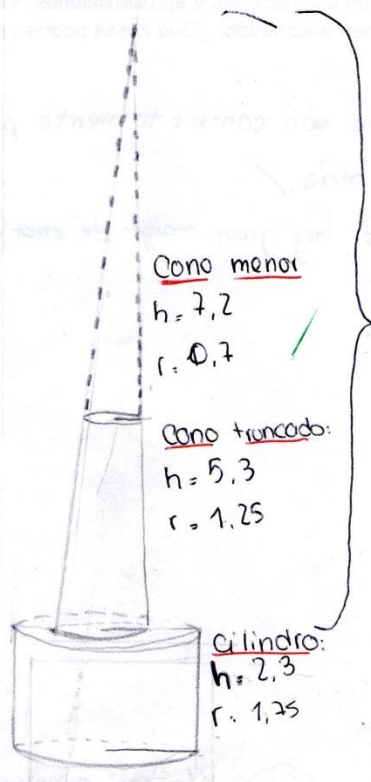 Cono menor
h = 7,2
r. 0,7
Cono truncado:
h = 5,3
r = 1.25
Cilindro:
h. 2,3
r. 1,75